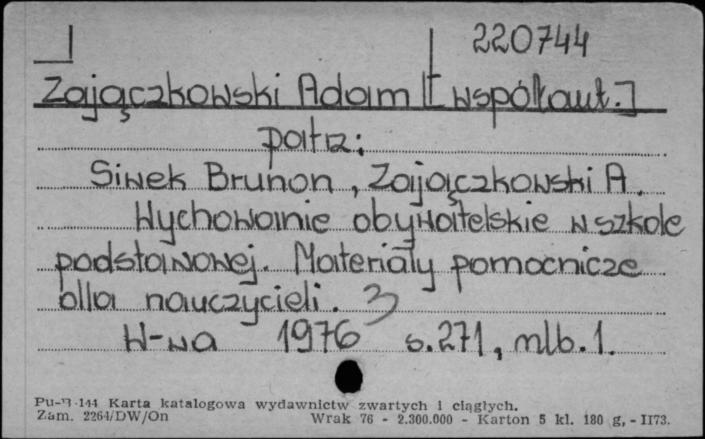 220744
Zajączkowski Adam [współaut.]
patrz:
Siwek Brunon, Zajączkowski A.
Wychowanie obywatelskie w szkole
podstawowej. Materiały pomocnicze
dla nauczycieli. 3
W-wa 1976 s.271, nlb.1.
Pu-B-144 Karta katalogowa wydawnictw zwartych i ciągłych.
Zam. 2264/DW/On Wrak 76 - 2.300.000 - Karton 5 kl. 180 g, - II73.